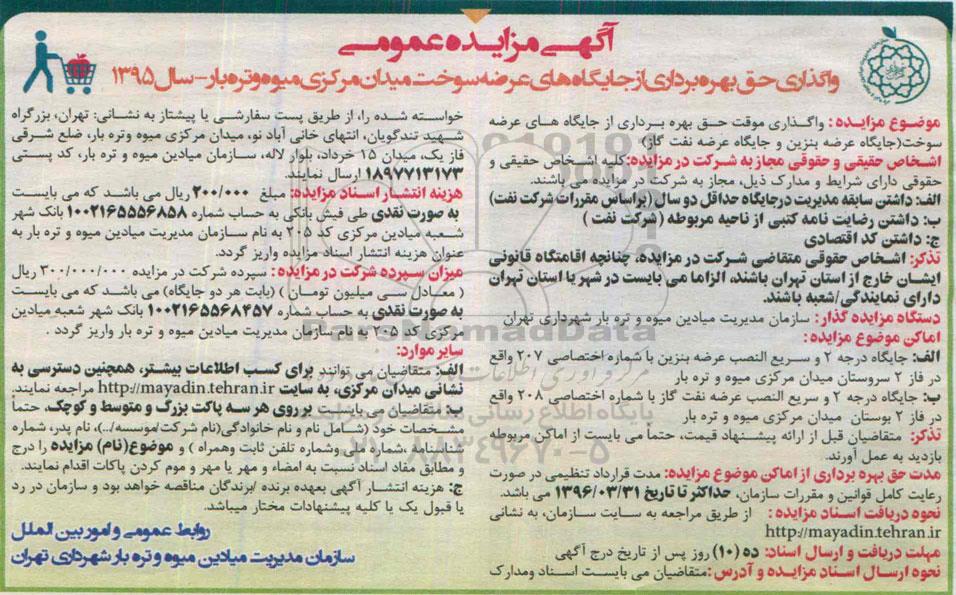 آگهی مزایده عمومی
واگذاری حق بهره برداری از جایگاه های عرضه سوخت میدان مرکزی میوه و تره بار - سال ۱۳۹۵
موضوع مزایده : واگذاری موقت حق بهره برداری از جایگاه های عرضه
سوخت(جایگاه عرضه بنزین و جایگاه عرضه نفت گاز)
اشخاص حقیقی و حقوقی مجاز به شرکت در مزایده:کلیه اشخاص حقیقی و
حقوقی دارای شرایط و مدارک ذیل، مجاز به شرکت در مزایده می باشند.
الف: داشتن سابقه مدیریت درجایگاه حداقل دو سال (براساس مقررات شرکت نفت)
ب: داشتن رضایت نامه کتبی از ناحیه مربوطه (شرکت نفت )
ج: داشتن کد اقتصادی
تذکر: اشخاص حقوقی متقاضی شرکت در مزایده، چنانچه اقامتگاه قانونی
ایشان خارج از استان تهران باشند، الزاما می بایست در شهر یا استان تهران
دارای نمایندگی/شعبه باشند.
دستگاه مزایده گذار: سازمان مدیریت میادین میوه و تره بار شهرداری تهران
اماکن موضوع مزایده:
الف: جایگاه درجه ۲ و سریع النصب عرضه بنزین با شماره اختصاصی ۲۰۷ واقع
در فاز ۲ سروستان میدان مرکزی میوه و تره بار
ب: جایگاه درجه ۲ و سریع النصب عرضه نفت گاز با شماره اختصاصی ۲۰۸ واقع
در فاز ۲ بوستان میدان مرکزی میوه و تره بار
تذکر: متقاضیان قبل از ارائه پیشنهاد قیمت، حتماً می بایست از اماکن مربوطه
بازدید به عمل آورند.
مدت حق بهره برداری از اماکن موضوع مزایده: مدت قرارداد تنظیمی در صورت
رعایت کامل قوانین و مقررات سازمان، حداکثر تا تاریخ ۱۳۹۶/۰۳/۳۱ می باشد.
نحوه دریافت اسناد مزایده : از طریق مراجعه به سایت سازمان، به نشانی
http://mayadin.tehran.ir
مهلت دریافت و ارسال اسناد: ده (۱۰) روز پس از تاریخ درج آگهی
نحوه ارسال اسناد مزایده و آدرس :متقاضیان می بایست اسناد ومدارک
خواسته شده را، از طریق پست سفارشی یا پیشتاز به نشانی: تهران، بزرگراه
شهید تندگویان، انتهای خانی آباد نو، میدان مرکزی میوه و تره بار، ضلع شرقی
فاز یک، میدان ۱۵ خرداد، بلوار لاله، سازمان میادین میوه و تره بار، کد پستی
۱۸۹۷۷۱۳۱۷۳ ارسال نمایند.
هزینه انتشار اسناد مزایده: مبلغ ۲۰۰/۰۰۰ ریال می باشد که می بایست
به صورت نقدی طی فیش بانکی به حساب شماره ۱۰۰۲۱۶۵۵۵۶۸۵۸ بانک شهر
شعبه میادین مرکزی کد ۲۰۵ به نام سازمان مدیریت میادین میوه و تره بار به
عنوان هزینه انتشار اسناد مزایده واریز گردد.
میزان سپرده شرکت در مزایده : سپرده شرکت در مزایده ۳۰۰/۰۰۰/۰۰۰ ریال
( معادل سی میلیون تومان ) (بابت هر دو جایگاه) می باشد که می بایست
به صورت نقدی به حساب شماره ۱۰۰۲۱۶۵۵۶۸۴۵۷ بانک شهر شعبه میادین
مرکزی کد ۲۰۵ به نام سازمان مدیریت میادین میوه و تره بار واریز گردد .
سایر موارد:
الف: متقاضیان می توانند برای کسب اطلاعات بیشتر، همچنین دسترسی به
نشانی میدان مرکزی، به سایت http://mayadin.tehran.ir مراجعه نمایند.
ب: متقاضیان می بایست بر روی هر سه پاکت بزرگ و متوسط و کوچک، حتماً
مشخصات خود (شامل نام و نام خانوادگی(نام شرکت/موسسه/...)، نام پدر، شماره
شناسنامه ،شماره ملی وشماره تلفن ثابت وهمراه ) و موضوع(نام) مزایده را درج
و مطابق مفاد اسناد نسبت به امضاء و مهر یا مهر و موم کردن پاکات اقدام نمایند.
ج: هزینه انتشار آگهی بعهده برنده /برندگان مناقصه خواهد بود و سازمان در رد
یا قبول یک یا کلیه پیشنهادات مختار میباشد.
روابط عمومی و امور بین الملل
سازمان مدیریت میادین میوه و تره بار شهرداری تهران
ParsNamadData
پایگاه اطلاع رسانی
۰۲۱-۸۸۳۴۹۶۷۰-۵